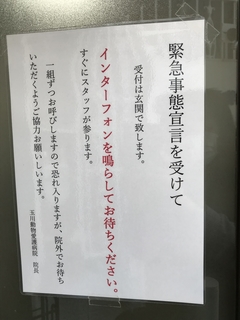 緊急事態宣言を受けて
受付は玄関で致します。
インターフォンを鳴らしてお待ちください。
すぐにスタッフが参ります。
一組ずつお呼びしますので恐れ入りますが、院外でお待ち
いただくようご協力お願いしいます。
玉川動物愛護病院 院長